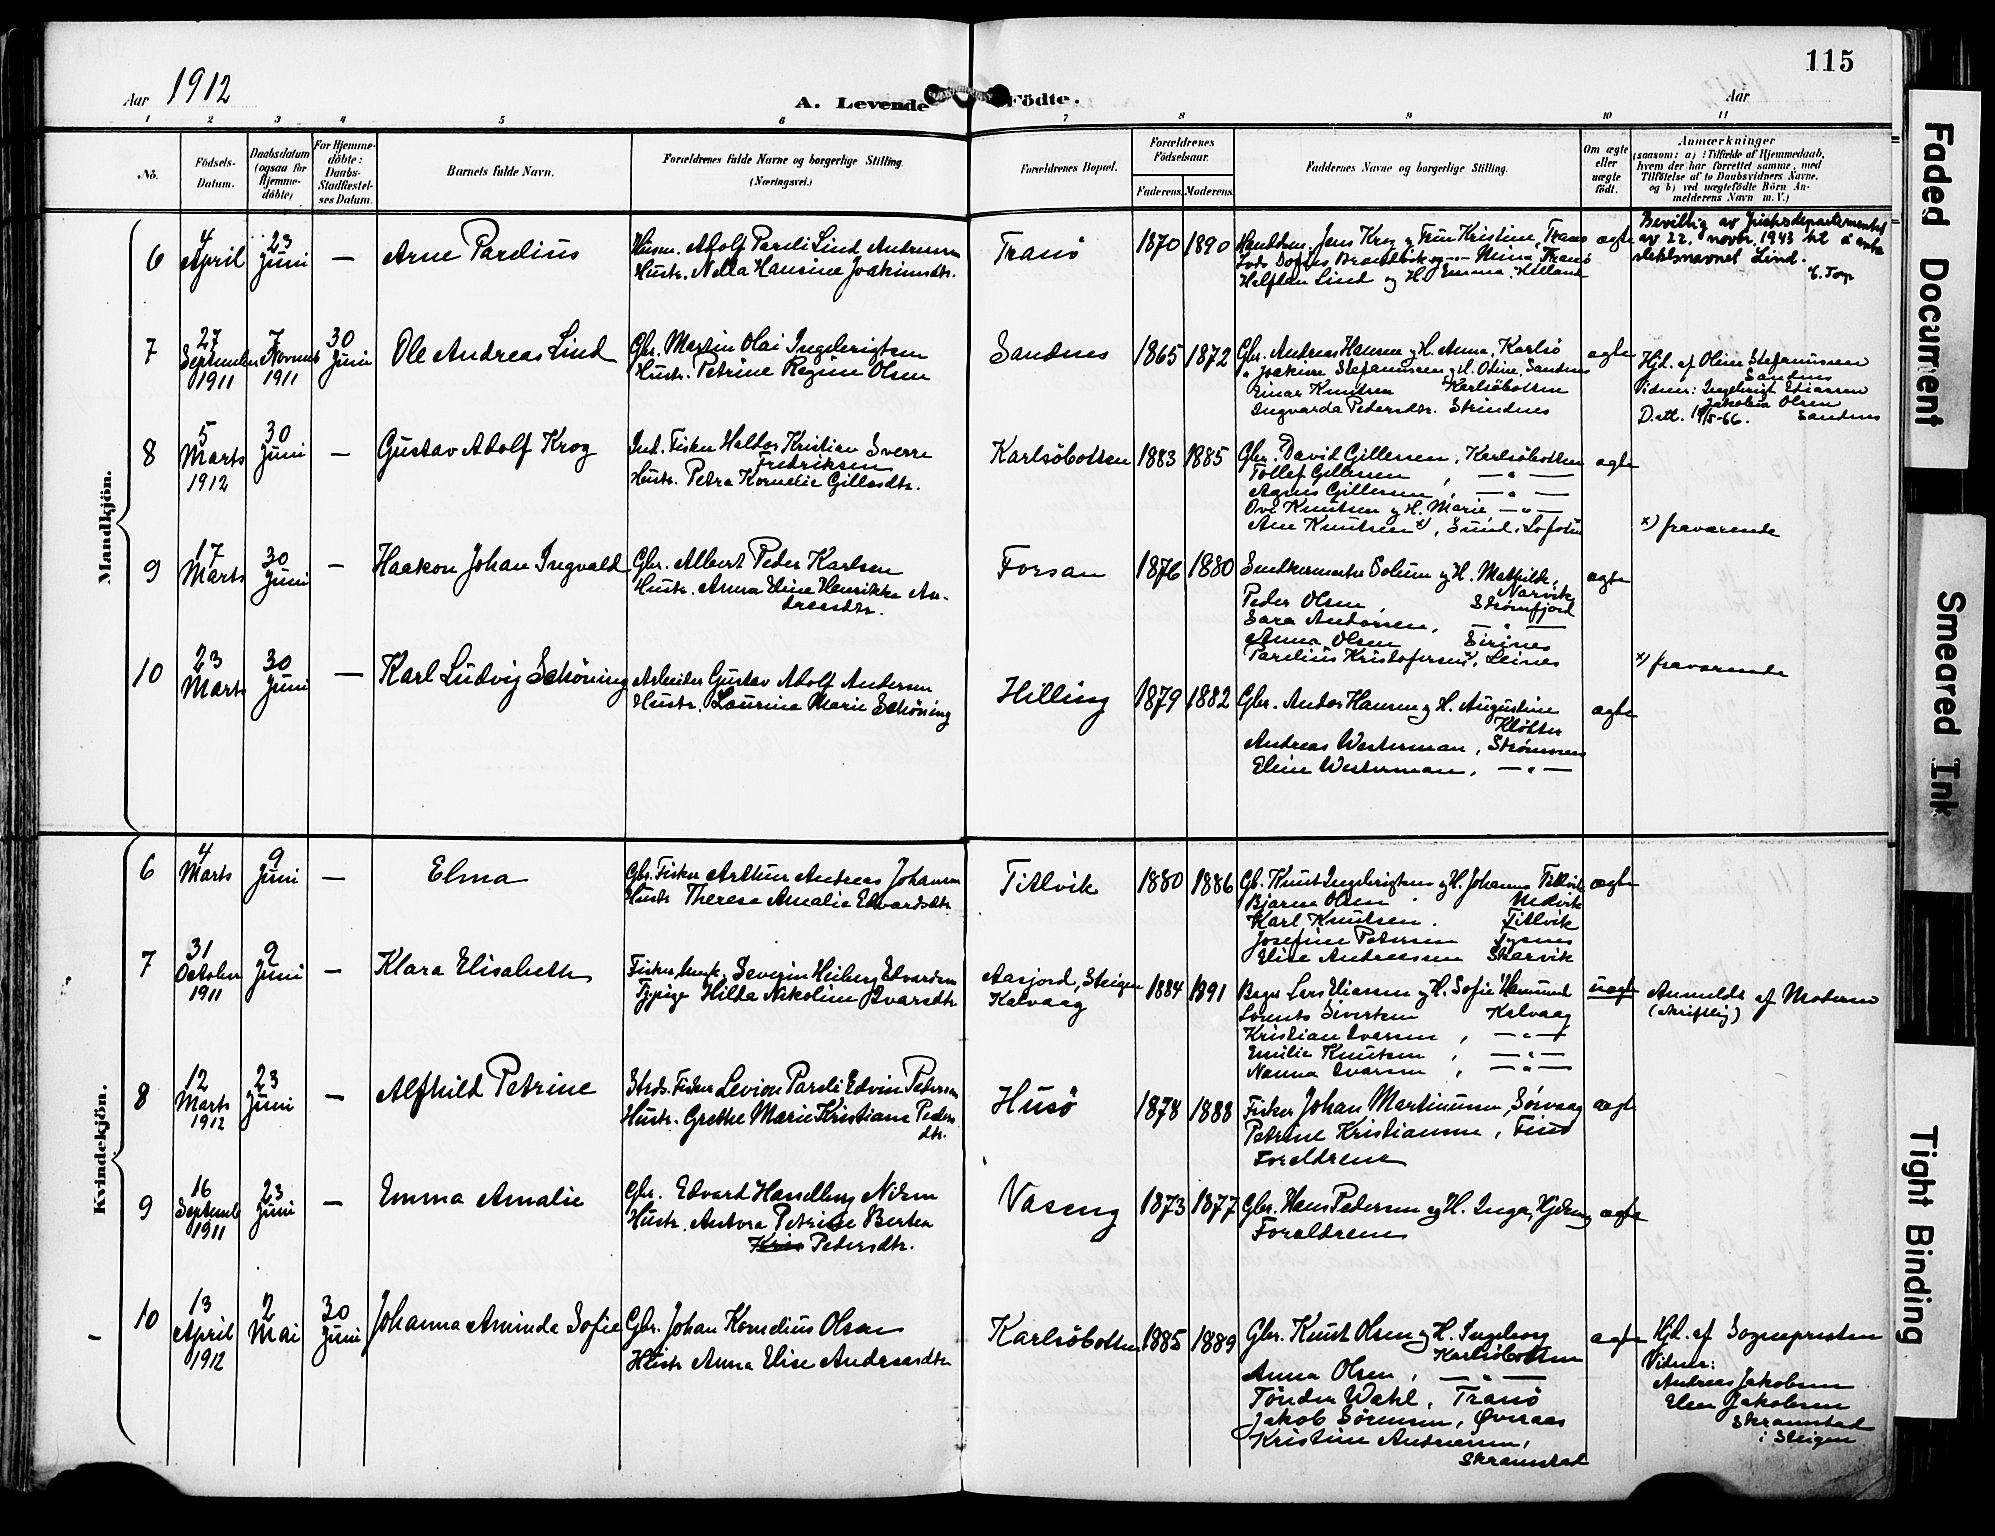 115
Aar 1912
A. Levende Födte.
Aar
1 2 3 4 5 6 7 8 9 10 11
No.
Födsels-Datum.
Daabsdatum (ogsaa for Hjemme-döbte)
For Hjemme-döbte: Daabs-Stadfæstel-ses Datum.
Barnets fulde Navn.
Forældrenes fulde Navne og borgerlige Stilling.
(Næringsvei.)
Forældrenes Bopæl.
Forældrenes Födselsaar.
Faderens. Moderens.
Faddernes Navne og borgerlige Stilling.
Om ægte eller uægte födt.
Anmærkninger
(saasom: a) i Tilfælde af Hjemmedaab,
hvem der har forrettet samme, med
Tilföielse af to Daabsvidners Navne,
og b) ved uægtefödte Börn An-
melderens Navn m. V.)
Mandkjön.
6
4 April
23 Juni
—
Arne Parelius
Husm. Adolf Pareli Lind Andersen
Hustr. Nella Hansine Joakimsdtr.
Tranö
1870 1890
Jens Krog og Frue Kristine, Tranö
Mina, Tranö
Halftan Lind og H. Emma, Helland
ægte
Bevillig av Justisdepartementet
av 22. novbr. 1943 til å anta
slektsnavnet Lind.
E. Torp
7
27 September 1911
7 Novemb 1911
30 Juni
Ole Andreas Lind
Gbr. Martin Olai Ingebrigtsen
Hustr. Petrine Regine Olsen
Sandnes
1865 1872
Gbr. Andreas Hansen og H. Anna, Karlsö
" Joakim Stefanussen og H. Oline, Sandnes
Einar Knudsen Karlsöbotten
Ingvarda Pedersdtr. Strindnes
ægte
Hjd. af Oline Stefanussen
Sandnes
Vidner: Ingebrigt Eliassen
Jakobia Olsen
Sandnes
D.att. 10/5-66.
8
5 Marts 1912
30 Juni
—
Gustav Adolf Krog
Ind. Fisker Haldor Kristian Sverre
Fredriksen
Hustr. Petra Kornelie Gillesdtr.
Karlsöbotten
1883 1885
Gbr. David Gillessen, Karlsöbotten
Tollef Gillesen, — " —
Agnes Gillesen, — " —
Ove Knutsen og H. Marie — " —
Ane Knutsen x), Sund i Lofoten
ægte
x) fraværende
9
17 Marts
30 Juni
—
Haakon Johan Ingvald
Gbr. Albert Peder Karlsen
Hustr. Anna Eline Henrikke An-
dreasdtr.
Forsan
1876 1880
Solum og H. Mathilde,
Narvik
Peder Olsen, Strömfjord
Sara Andorsen, — " —
Anna Olsen Sirines
Parelius Kristofersen x), Leines
ægte
x) fraværende
10
23 Marts
30 Juni
—
Karl Ludvig Schöning
Arbeider Gustav Adolf Andersen
Hustr. Laurine Marie Schöning
Hilling
1879 1882
Gbr. Andor Hansen og H. Augustine
Klötten
Andreas Westerman, Strömsnes
Eline Westerman, — " —
ægte
Kvindekjön.
6
4 Marts
9 Juni
—
Elma
Gbr. Fisker Arthur Andreas Johansen
Hustr Therese Amalie Edvardsdtr.
Titlvik
1880 1886
Gb. Knut Ingebrigtsen og H. Johanna Titlvik
Bjarne Olsen
Karl Knutsen. Titlvik
Josefine Petersen Tysnes
Elise Andreassen Skarvik
ægte
7
31 October 1911
9 Juni
—
Klara Elisabeth
Fisker, Ungk. Severin Heiberg Edvardsen
Tj.pige Hilda Nikoline Ivarsdtr
Aasjord, Steigen
Kalvaag
1884 1891
Lars Eliassen og H. Sofie Hamsund
Lorents Sivertsen Kalvaag
Kristian Ivarsen, — " —
Emilie Knutsen, — " —
Nanna Ivarsen, — " —
uægte
Anmeldt af Moderen
(skriftlig)
8
12 Marts 1912
23 Juni
—
Alfhild Petrine
Strds. Fisker Levion Pareli Edvin Petersen
Hustr. Grethe Marie Kristiane Peders
dtr.
Husö
1878 1888
Fisker Johan Martinussen, Sörvaag
Petrine Kristiansen, Finö
Forældrene
ægte
9
16 Septemb 1911
23 Juni
—
Emma Amalie
Gbr. Edvard Handberg Nilsen
Hustr. Antora Petrine Bertea
Kris Petersdtr.
Vaseng
1873 1877
Gbr. Hans Pedersen og H. Inga, Hjdeng
Forældrene
ægte
10
13 April 1912
2 Mai
30 Juni
Johanna Aminda Sofie
Gbr. Johan Kornelius Olsen
Hustr Anna Elise Andreasdtr
Karlsöbotten
1885 1889
Gbr. Knut Olsen og H. Ingeborg
Karlsöbotten
Anna Olsen, — " —
Tönder Wahl, Tranö
Jakob Sörensen, Øveraas
Kristine Andreassen,
Skramstad
ægte
Hjd. af Sognepresten
Vidner:
Andreas Jakobsen
Elen Jakobsen
Skramstad
i Steigen
Faded Document
Smeared Ink
Tight Binding